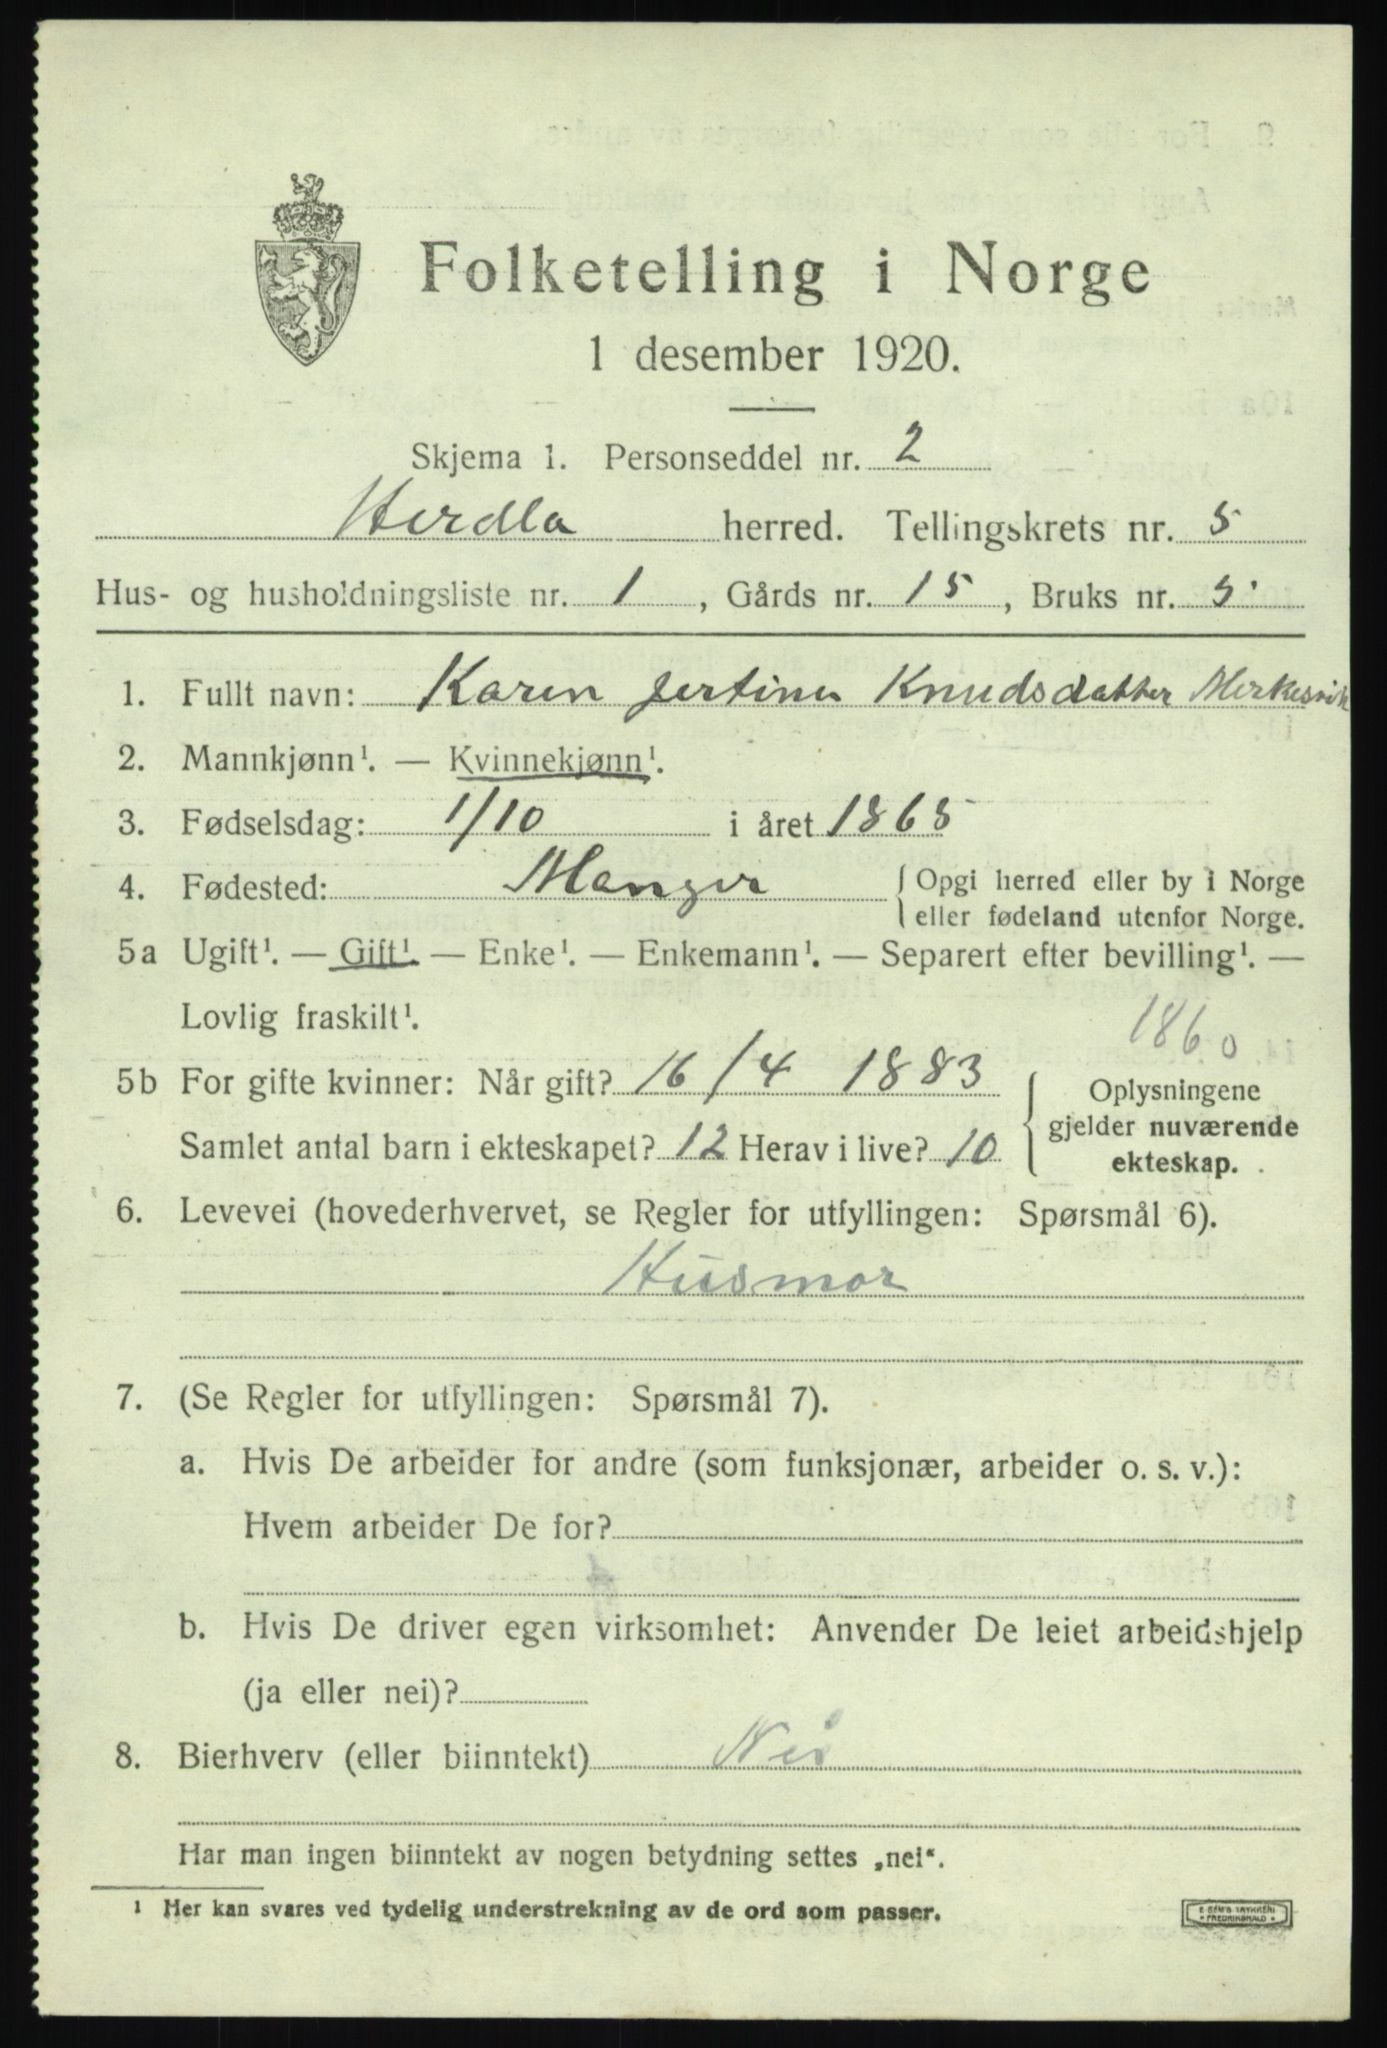 Folketelling i Norge
1 desember 1920.
Skjema 1. Personseddel nr. 2
Herdla herred. Tellingskrets nr. 5
Hus- og husholdningsliste nr. 1, Gårds nr. 15, Bruks nr.
1. Fullt navn: Karen Knudsdatter
2. Mannkjønn¹. — Kvinnekjønn¹.
3. Fødselsdag: 1/10 i året 1865
4. Fødested: Manger { Opgi herred eller by i Norge
eller fødeland utenfor Norge.
5a Ugift¹. — Gift¹. — Enke¹. — Enkemann¹. — Separert efter bevilling¹. —
Lovlig fraskilt¹.
1860
5b For gifte kvinner: Når gift? 16/4 1883 { Oplysningene
gjelder nuværende
Samlet antal barn i ekteskapet? 12 Herav i live? 10
ekteskap.
6. Levevei (hovederhvervet, se Regler for utfyllingen: Spørsmål 6).
Husmor
7. (Se Regler for utfyllingen: Spørsmål 7).
a. Hvis De arbeider for andre (som funksjonær, arbeider o. s. v.):
Hvem arbeider De for?
b. Hvis De driver egen virksomhet: Anvender De leiet arbeidshjelp
(ja eller nei)?
8. Bierhverv (eller biinntekt) Nei
Har man ingen biinntekt av nogen betydning settes „nei“.
¹ Her kan svares ved tydelig understrekning av de ord som passer.